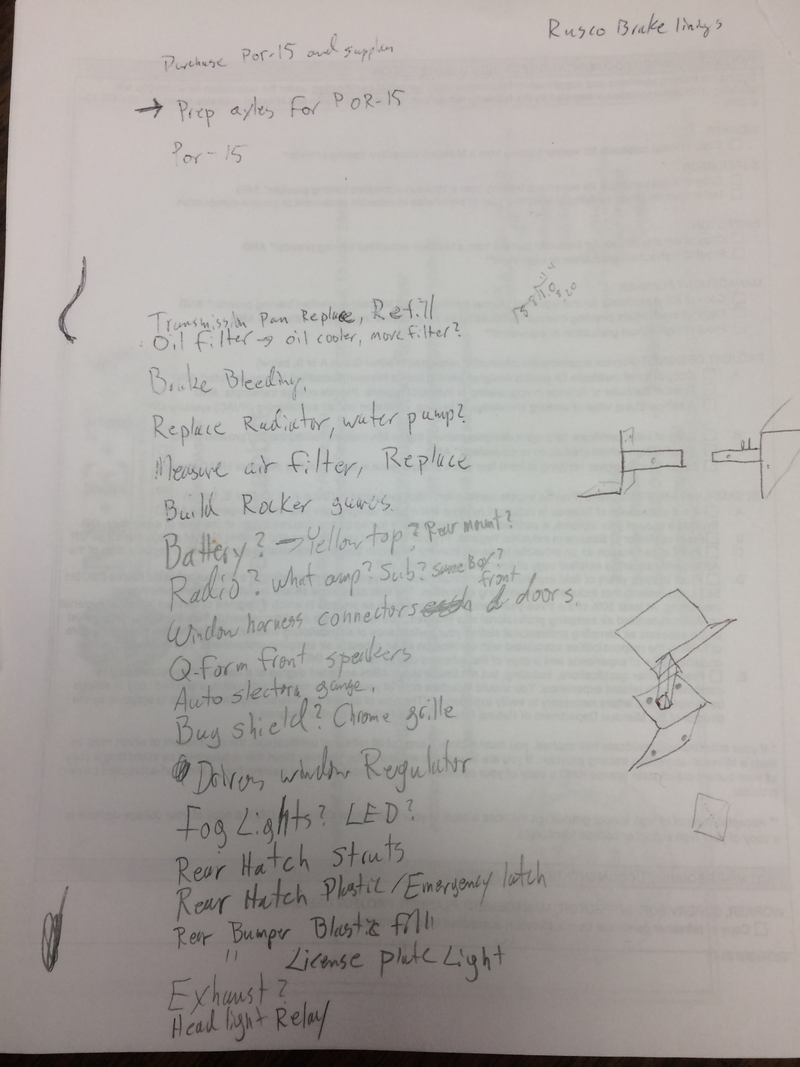 Rusco Brake
Purchase Por-15 and supplies
→ Prep axles for POR-15
Por-15
Transmission Pan Replace, Refill
Oil filter → oil cooler, more filter?
Brake Bleeding.
Replace Radiator, water pump?
Measure air filter, Replace
Build Rocker
Battery? → Yellow top? Rear mount?
Radio? What amp? Sub? same Box?
Window harness connectors front doors.
Q-form front speakers
Auto
Bug shield? Chrome grille
window Regulator
Fog Lights? LED?
Rear Hatch Struts
Rear Hatch Plastic/Emergency latch
Rear Bumper Blastic fill
" License plate Light
Exhaust?
Headlight Relay